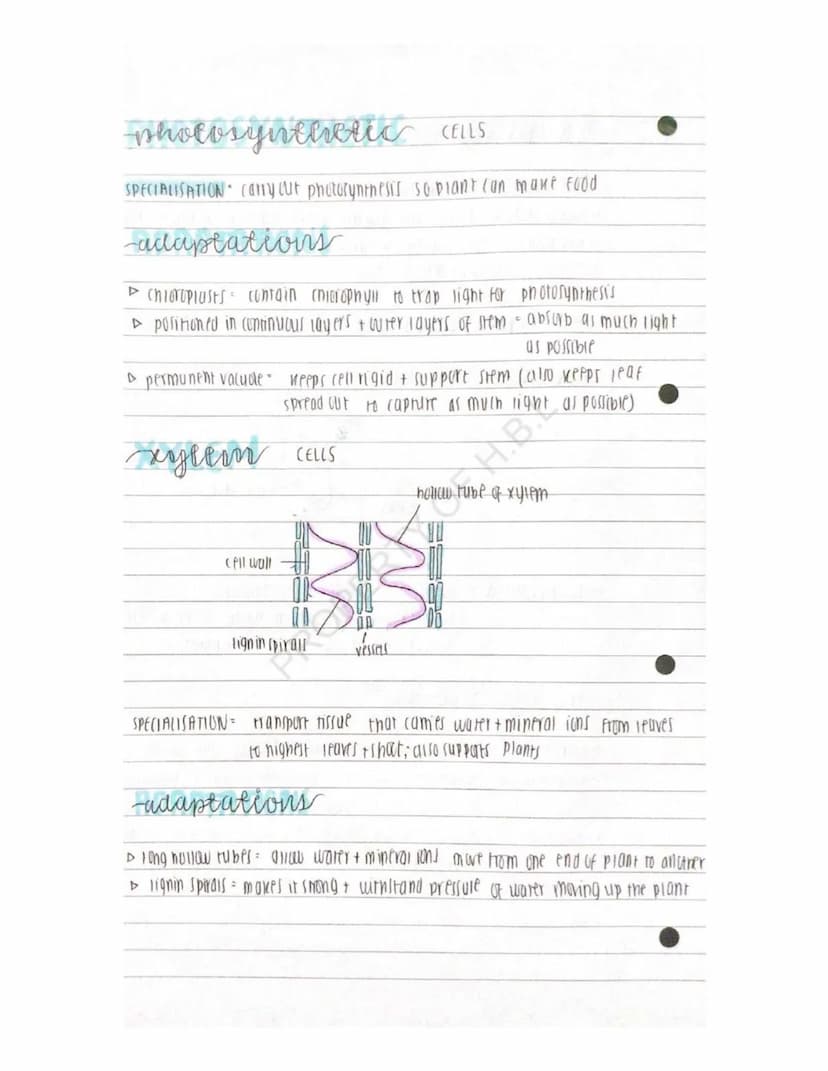 photosynthetic CELLS
SPECIALISATION = carry out photosynthesis so plant can make food
adaptations
▷ chloroplasts = contain chlorophyll to trap light for photosynthesis
▷ positioned in continuous layers + outer layers of stem = absorb as much light
as possible
▷ permanent vacuole = keeps cell rigid + support stem (also keeps leaf
spread out to capture as much light as possible)
xylem CELLS
hollow tube of xylem
cell wall
lignin spirals
vessels
PROPERTY OF H.B.L
SPECIALISATION = transport tissue that carries water + mineral ions from leaves
to highest leaves + shoot; also supports plants
adaptations
▷ long hollow tubes = allow water + mineral ions move from one end of plant to another
▷ lignin spirals = makes it strong + withstand pressure of water moving up the plant